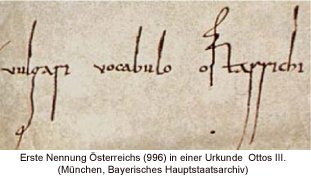 vulgari vocabulo ostarrichi
Erste Nennung Österreichs (996) in einer Urkunde Ottos III.
(München, Bayerisches Hauptstaatsarchiv)